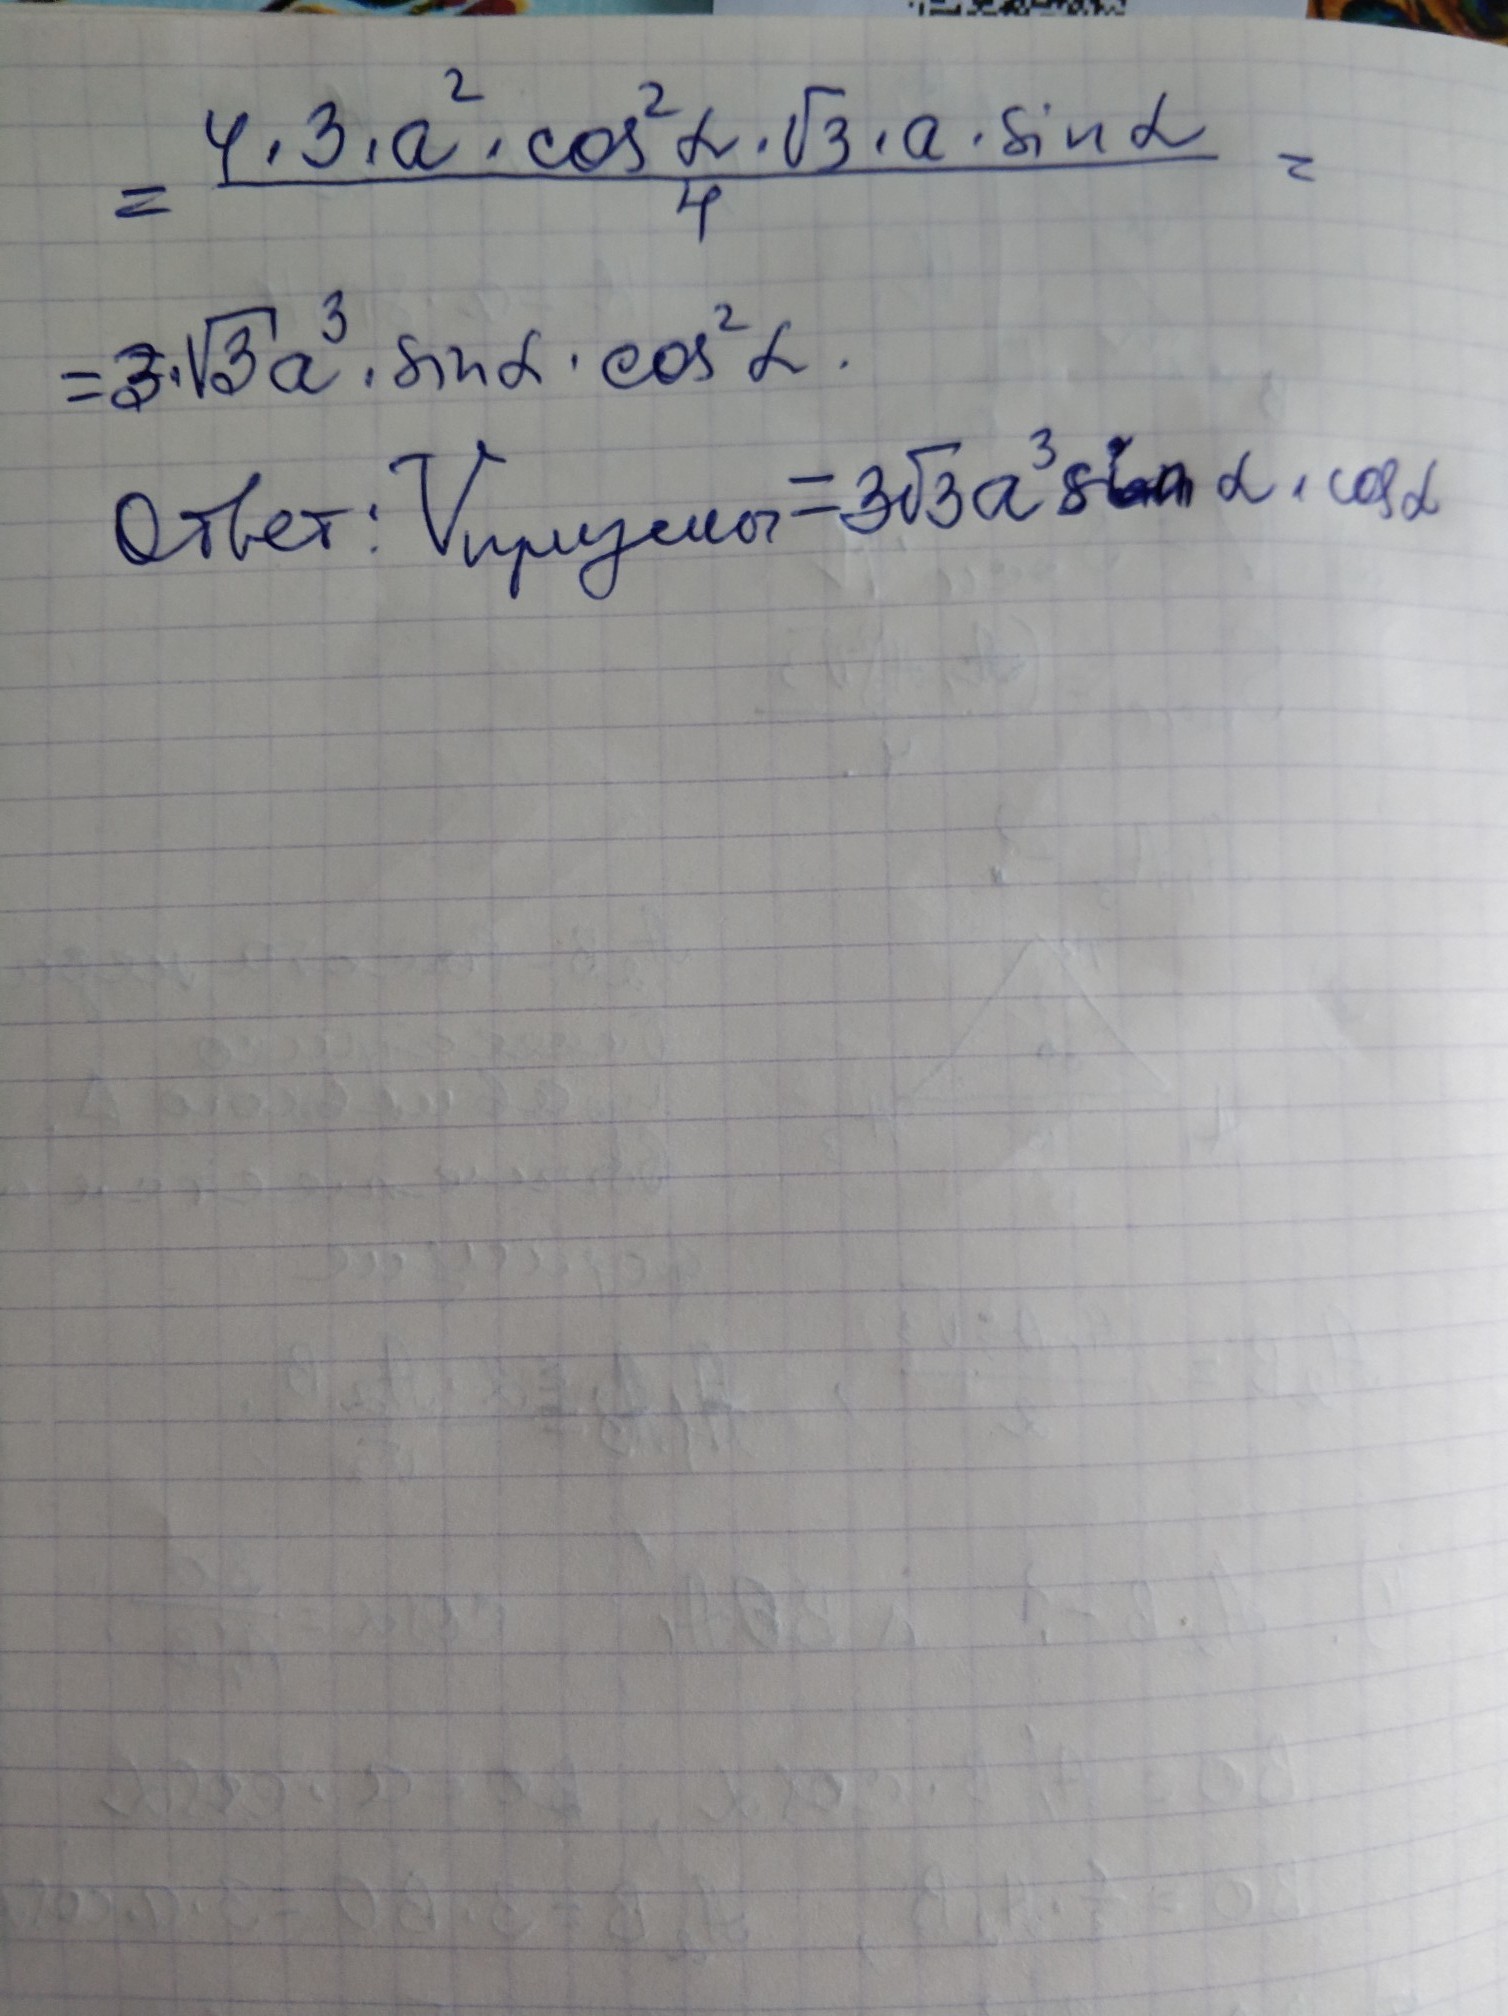 = 4·3·a²·cos²α·√3·a·sinα / 4 =
= 3·√3a³·sinα·cos²α.
Ответ: Vпризмы = 3√3a³sin α·cosα